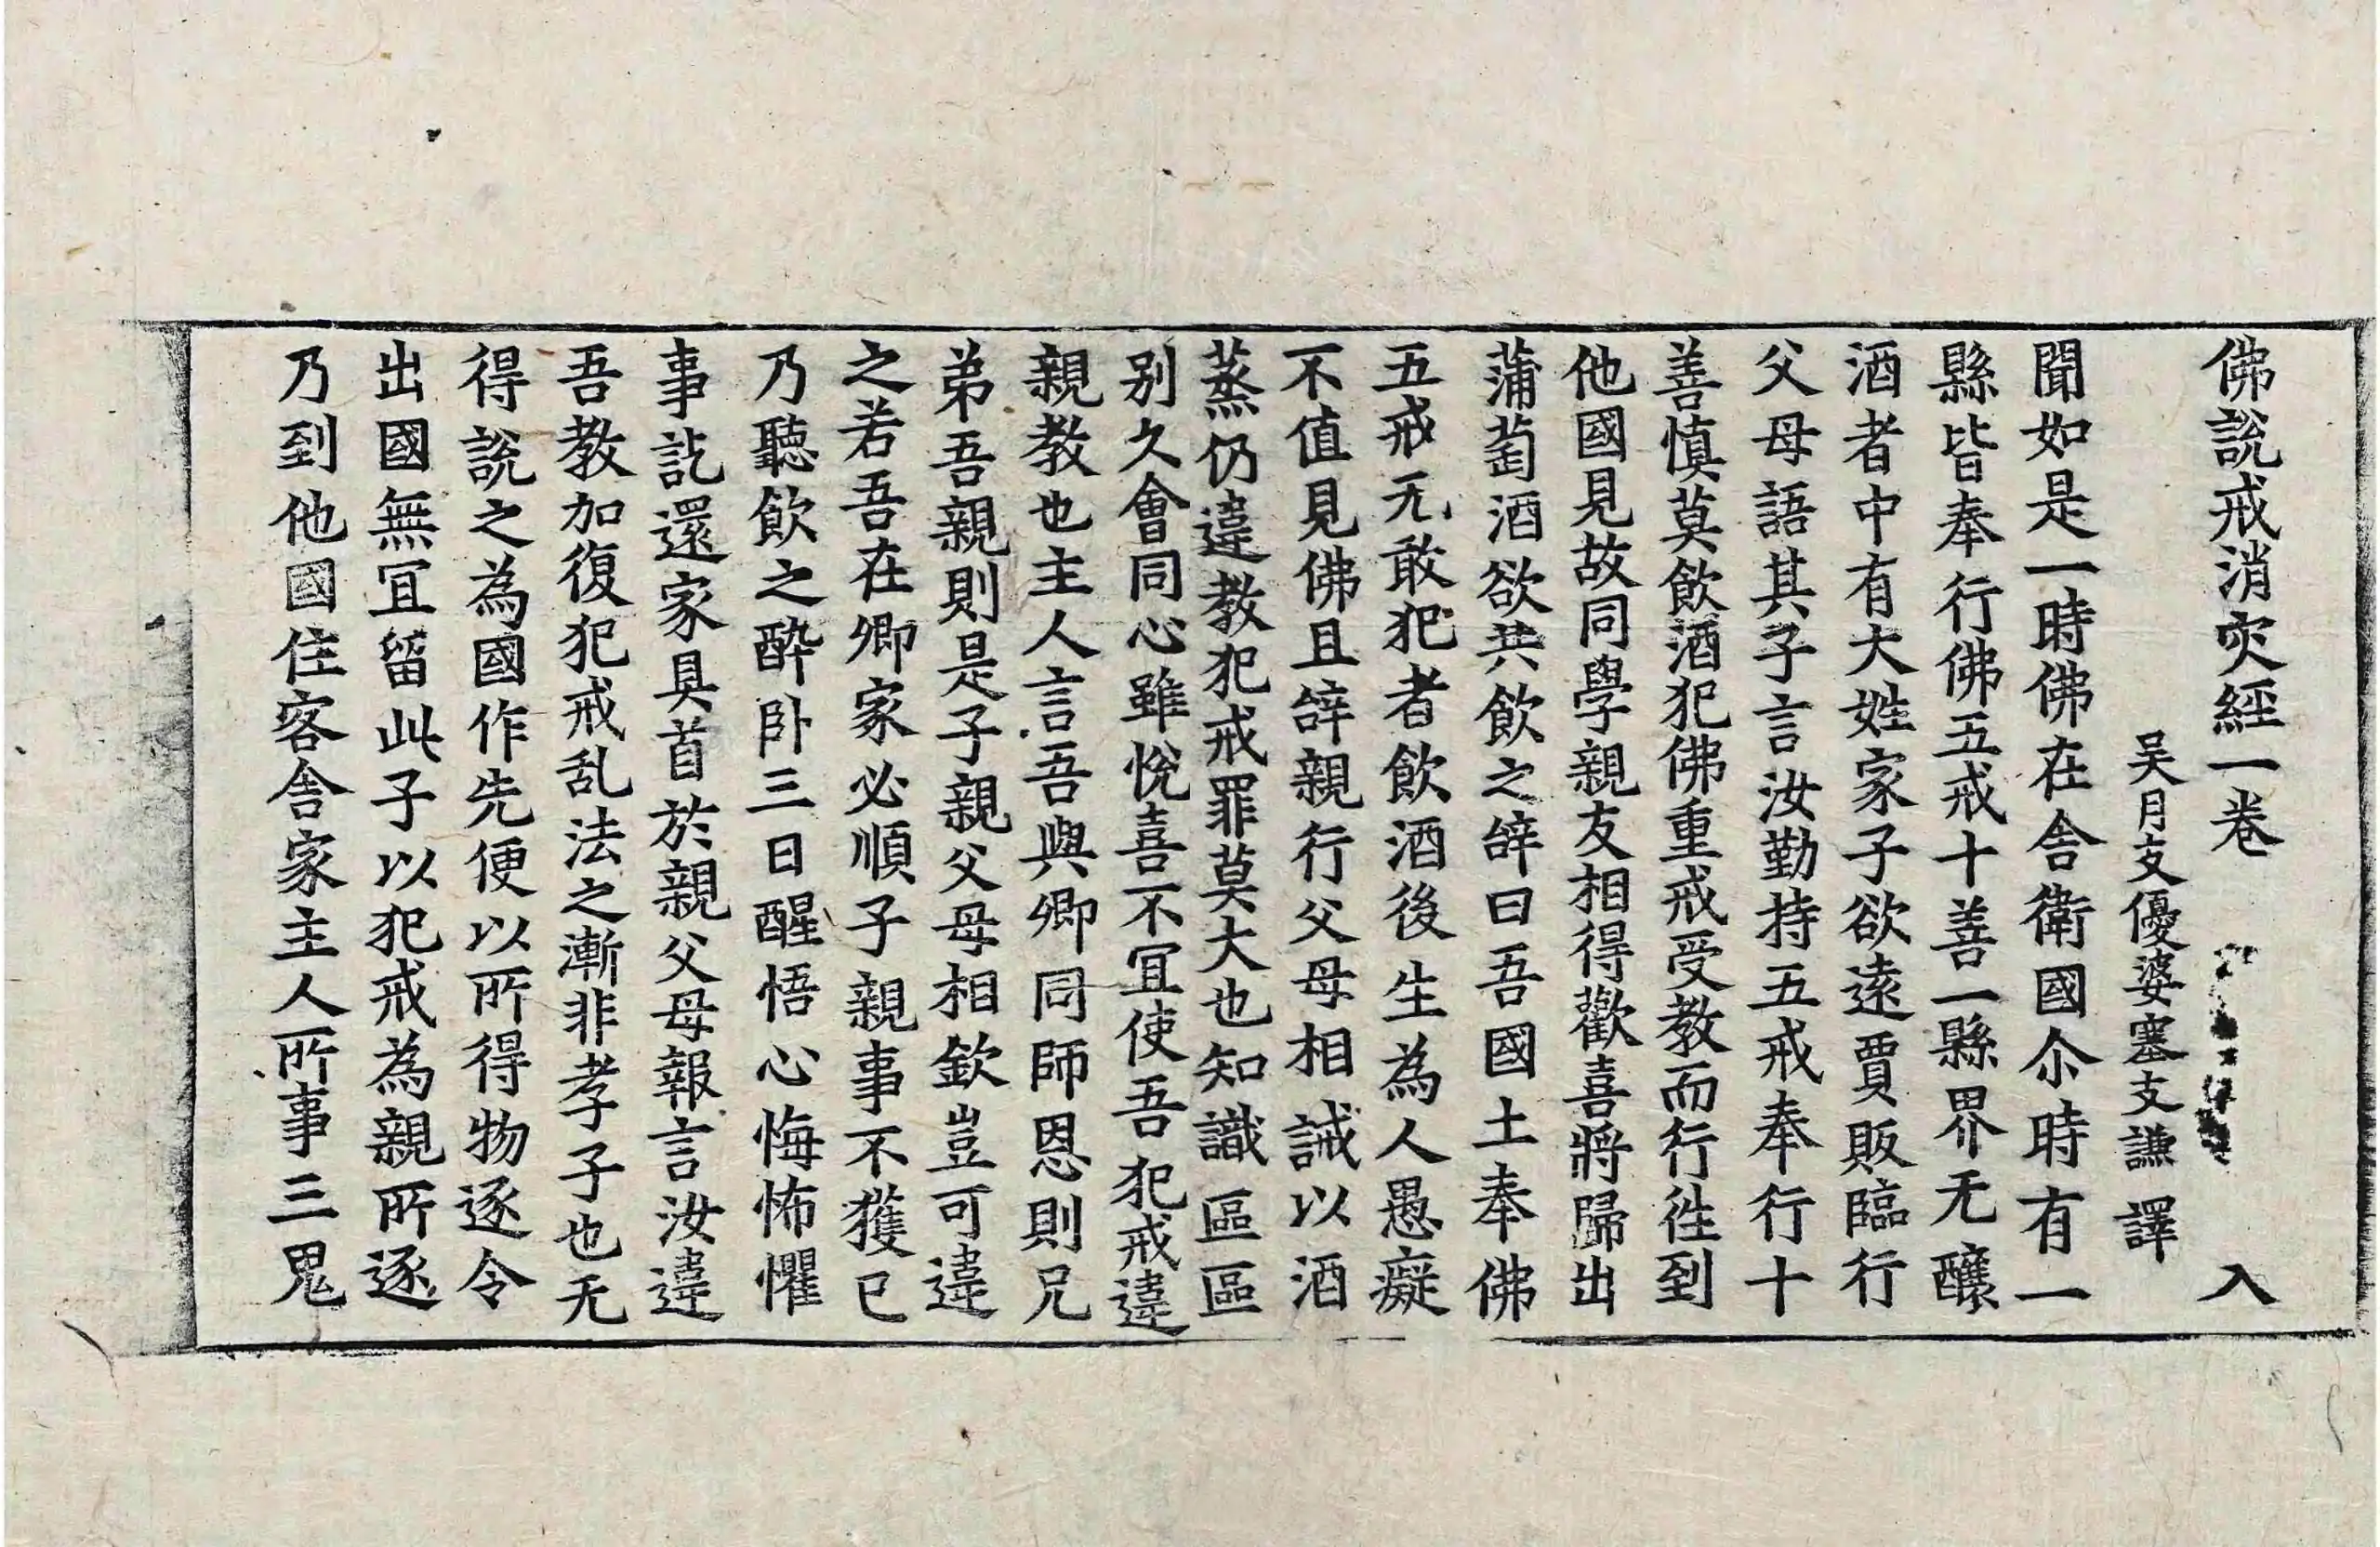 佛說戒消灾經一卷 入
吴月支優婆塞支謙 譯
聞如是一時佛在舍衛國尒時有一
縣皆奉行佛五戒十善一縣界无釀
酒者中有大姓家子欲遠賈販臨行
父母語其子言汝勤持五戒奉行十
善慎莫飲酒犯佛重戒受教而行徃到
他國見故同學親友相得歡喜將歸出
蒲萄酒欲共飲之辤曰吾國土奉佛
五戒无敢犯者飲酒後生為人愚癡
不值見佛且辤親行父母相誡以酒
蒸仍違教犯戒罪莫大也知識區區
别久會同心雖悅喜不冝使吾犯戒違
親教也主人言吾與卿同師恩則兄
弟吾親則是子親父母相欽豈可違
之若吾在卿家必順子親事不獲已
乃聽飲之醉卧三日醒悟心悔怖懼
事訖還家具首於親父母報言汝違
吾教加復犯戒乱法之漸非孝子也无
得說之為國作先便以所得物逐令
出國無冝留此子以犯戒為親所逐
乃到他國住客舍家主人所事三鬼